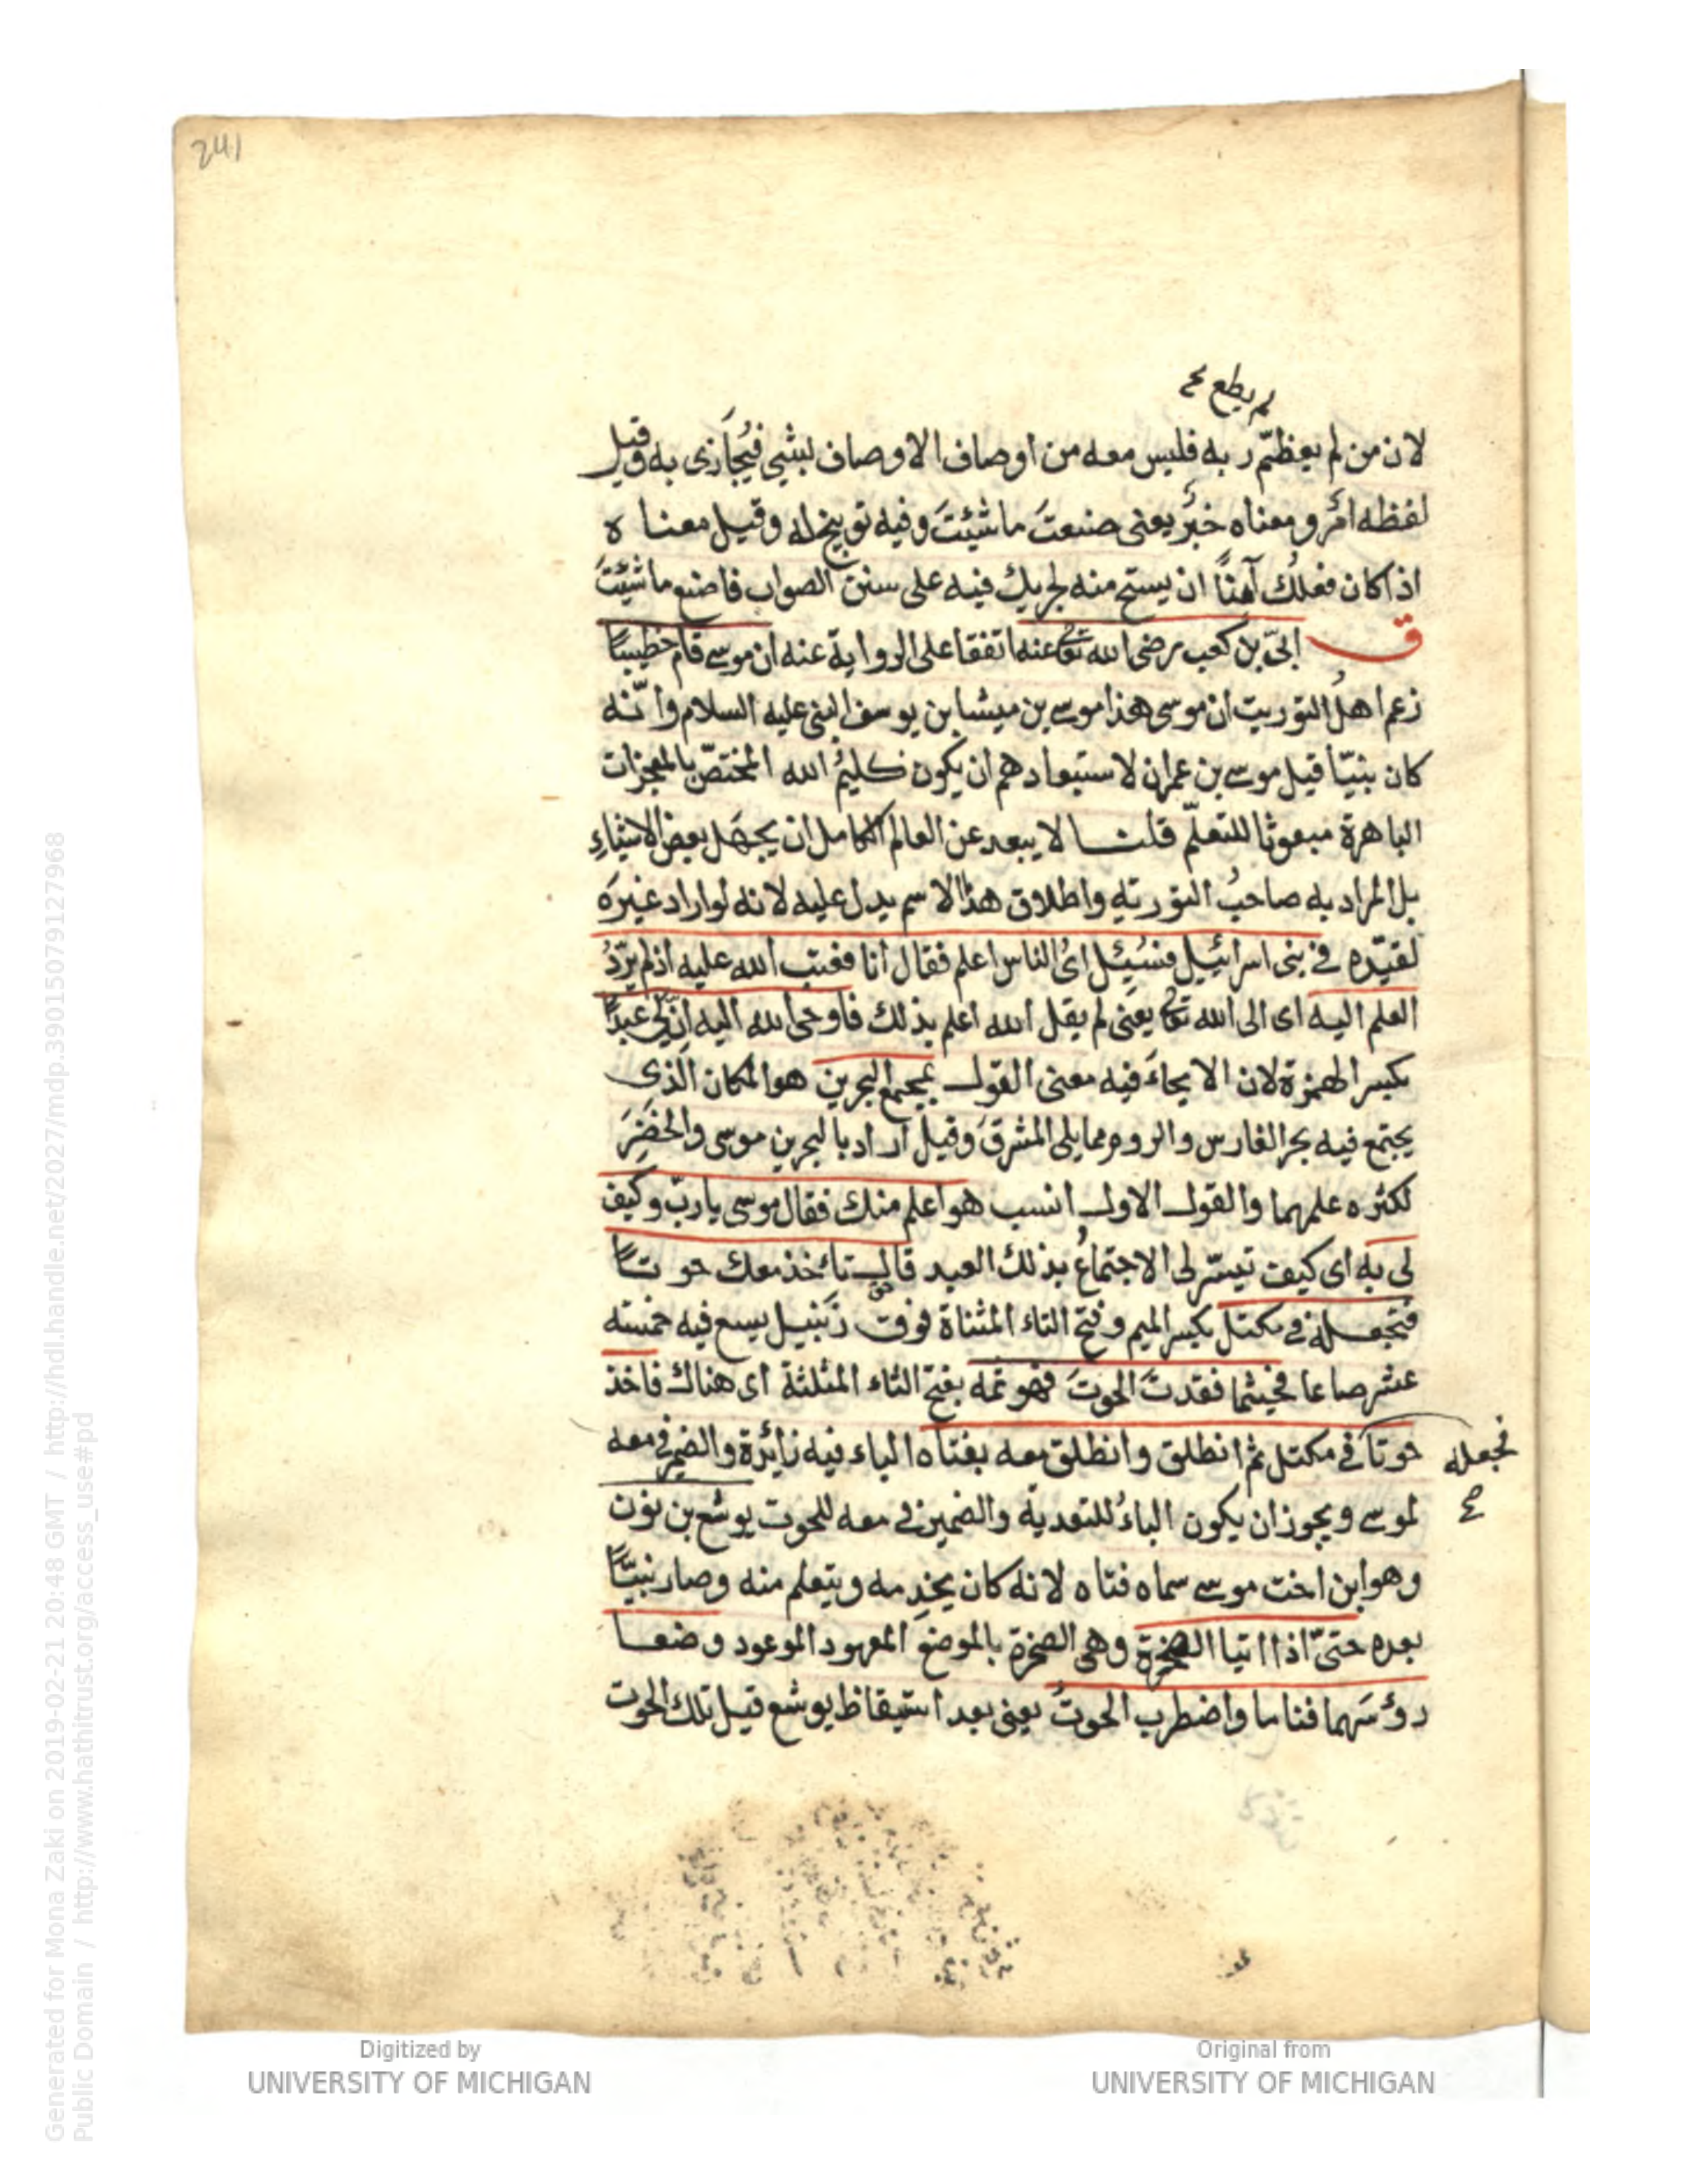 241
لم يطع صح
لان من لم يعظّم ربه فليس معه من اوصاف الاوصاف لبشىٔ فيُجَازى به وقيل
لفظه امرٌ ومعناه خبرٌ يعنى صنعتَ ما شئتَ وفيه توبيخ له وقيل معناه
اذا كان فعلك آمنًا ان يستح منه لجريك فيه على سنن الصواب فاصنع ما شئتَ
ق ابىّ بن كعب رضى الله تعا عنه اتفقا على الرواية عنه ان موسى قام خطيبًا
زعم اهلُ التوريت ان موسى هذا موسى بن ميشا بن يوسف النبى عليه السلام وانّه
كان نبيّا قبل موسى بن عمران لاستبعادهم ان يكون كليمُ الله المختصّ بالمعجزات
الباهرة مبعوثا للتعلّم قلنا لا يبعد عن العالم الكامل ان يجهَل بعض الاشياءِ
بل المراد به صاحبُ التوريةِ واطلاق هذا الاسم يدل عليه لانه لو اراد غيرَه
لقيّده فى بنى اسرائيل فسُئِل اىُّ الناس اعلم فقال انا فعتب الله عليه اذ لم يَرُدّ
العلم اليه اى الى الله تعا يعنى لم يقل الله اعلم بذلك فاوحى الله اليه اِنّ لى عبدًا
بكسر الهمزة لان الايحاءَ فيه معنى القول بمجمع البحرين هو المكان الذى
يجتمع فيه بحر الفارس والروم مما يلى المشرقَ وقيل اراد بالبحرين موسى والخضِرَ
لكثره علمهما والقول الاول انسب هو اعلم منك فقال موسى يا ربّ وكيف
لى به اى كيف تيسّر لى الاجتماعُ بذلك العبد قال تأخذ معك حوتًا
فتجعله فى مكتل بكسر الميم وفتح التاء المثناة فوق زَنبيل يسع فيه خمسته
عشر صاعا فحيثما فقدتَ الحوتَ فهو ثمه بفتح الثاء المثلثة اى هناك فاخذ
حوتا فى مكتل ثم انطلق وانطلق معه بفتاه الباء فيه زائرة والضمير فى معه
فجعله
صح
لموسى ويجوز ان يكون الباءُ للتعدية والضمير فى معه للحوت يوشع بن نون
وهو ابن اخت موسى سماه فتاه لانه كان يخدِمه ويتعلم منه وصار نبيًّا
بعده حتىّ اذا اتيا الصخرة وهى الصخرة بالموضع المعهود الموعود وضعا
رؤسَهما فناما واضطرب الحوتُ يعنى بعد استيقاظ يوشع قيل تلك الحوت
Generated for Mona Zaki on 2019-02-21 20:48 GMT / http://hdl.handle.net/2027/mdp.39015079127968
Public Domain / http://www.hathitrust.org/access_use#pd
Digitized by
UNIVERSITY OF MICHIGAN
Original from
UNIVERSITY OF MICHIGAN